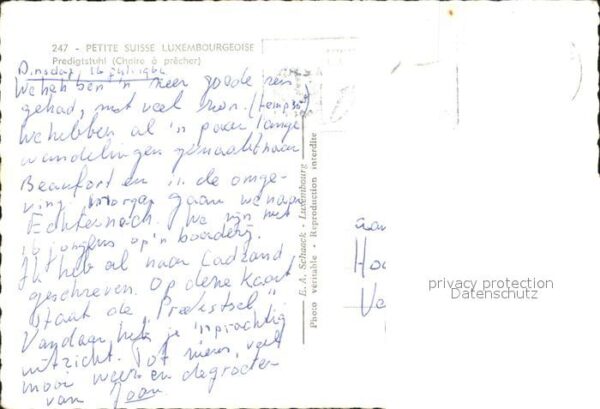 247 - PETITE SUISSE LUXEMBOURGEOISE
Predigtstuhl (Chaire à prêcher)
Dinsdag, 16 juli
We hebben 'n zeer goede reis
gehad, met veel zon.
We hebben al 'n paar lange
wandelingen gemaakt naar
Beaufort en in de omge-
ving. Morgen gaan we naar
Echternach. We zijn met
16 jongens op 'n boerderij.
Ik heb al naar Cadzand
geschreven. Op deze kaart
staat de "
Vandaar heb je 'n prachtig
uitzicht. Tot ziens, veel
mooi weer en de groeten
van Joan.
E. A. Schaack - Luxembourg
Photo véritable • Reproduction interdite
aan
Ho
Ve
privacy protection
Datenschutz